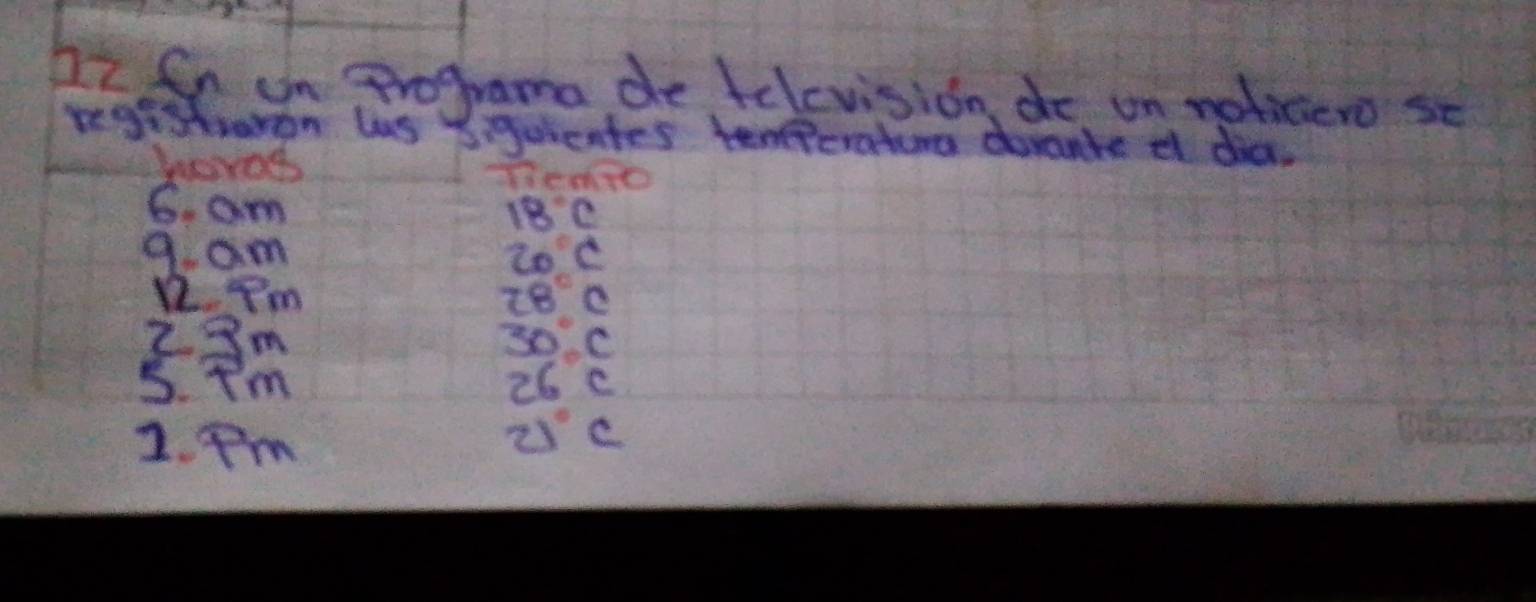 12 En un Programa de televisión, de un noticiero se
registraron las siguientes temperatura durante el dia.
horas Tiempo
6. am 18°C
9. am 20°C
12. Pm 28°C
2. Pm 30°C
5. Pm 26°C
1. Pm 21°C